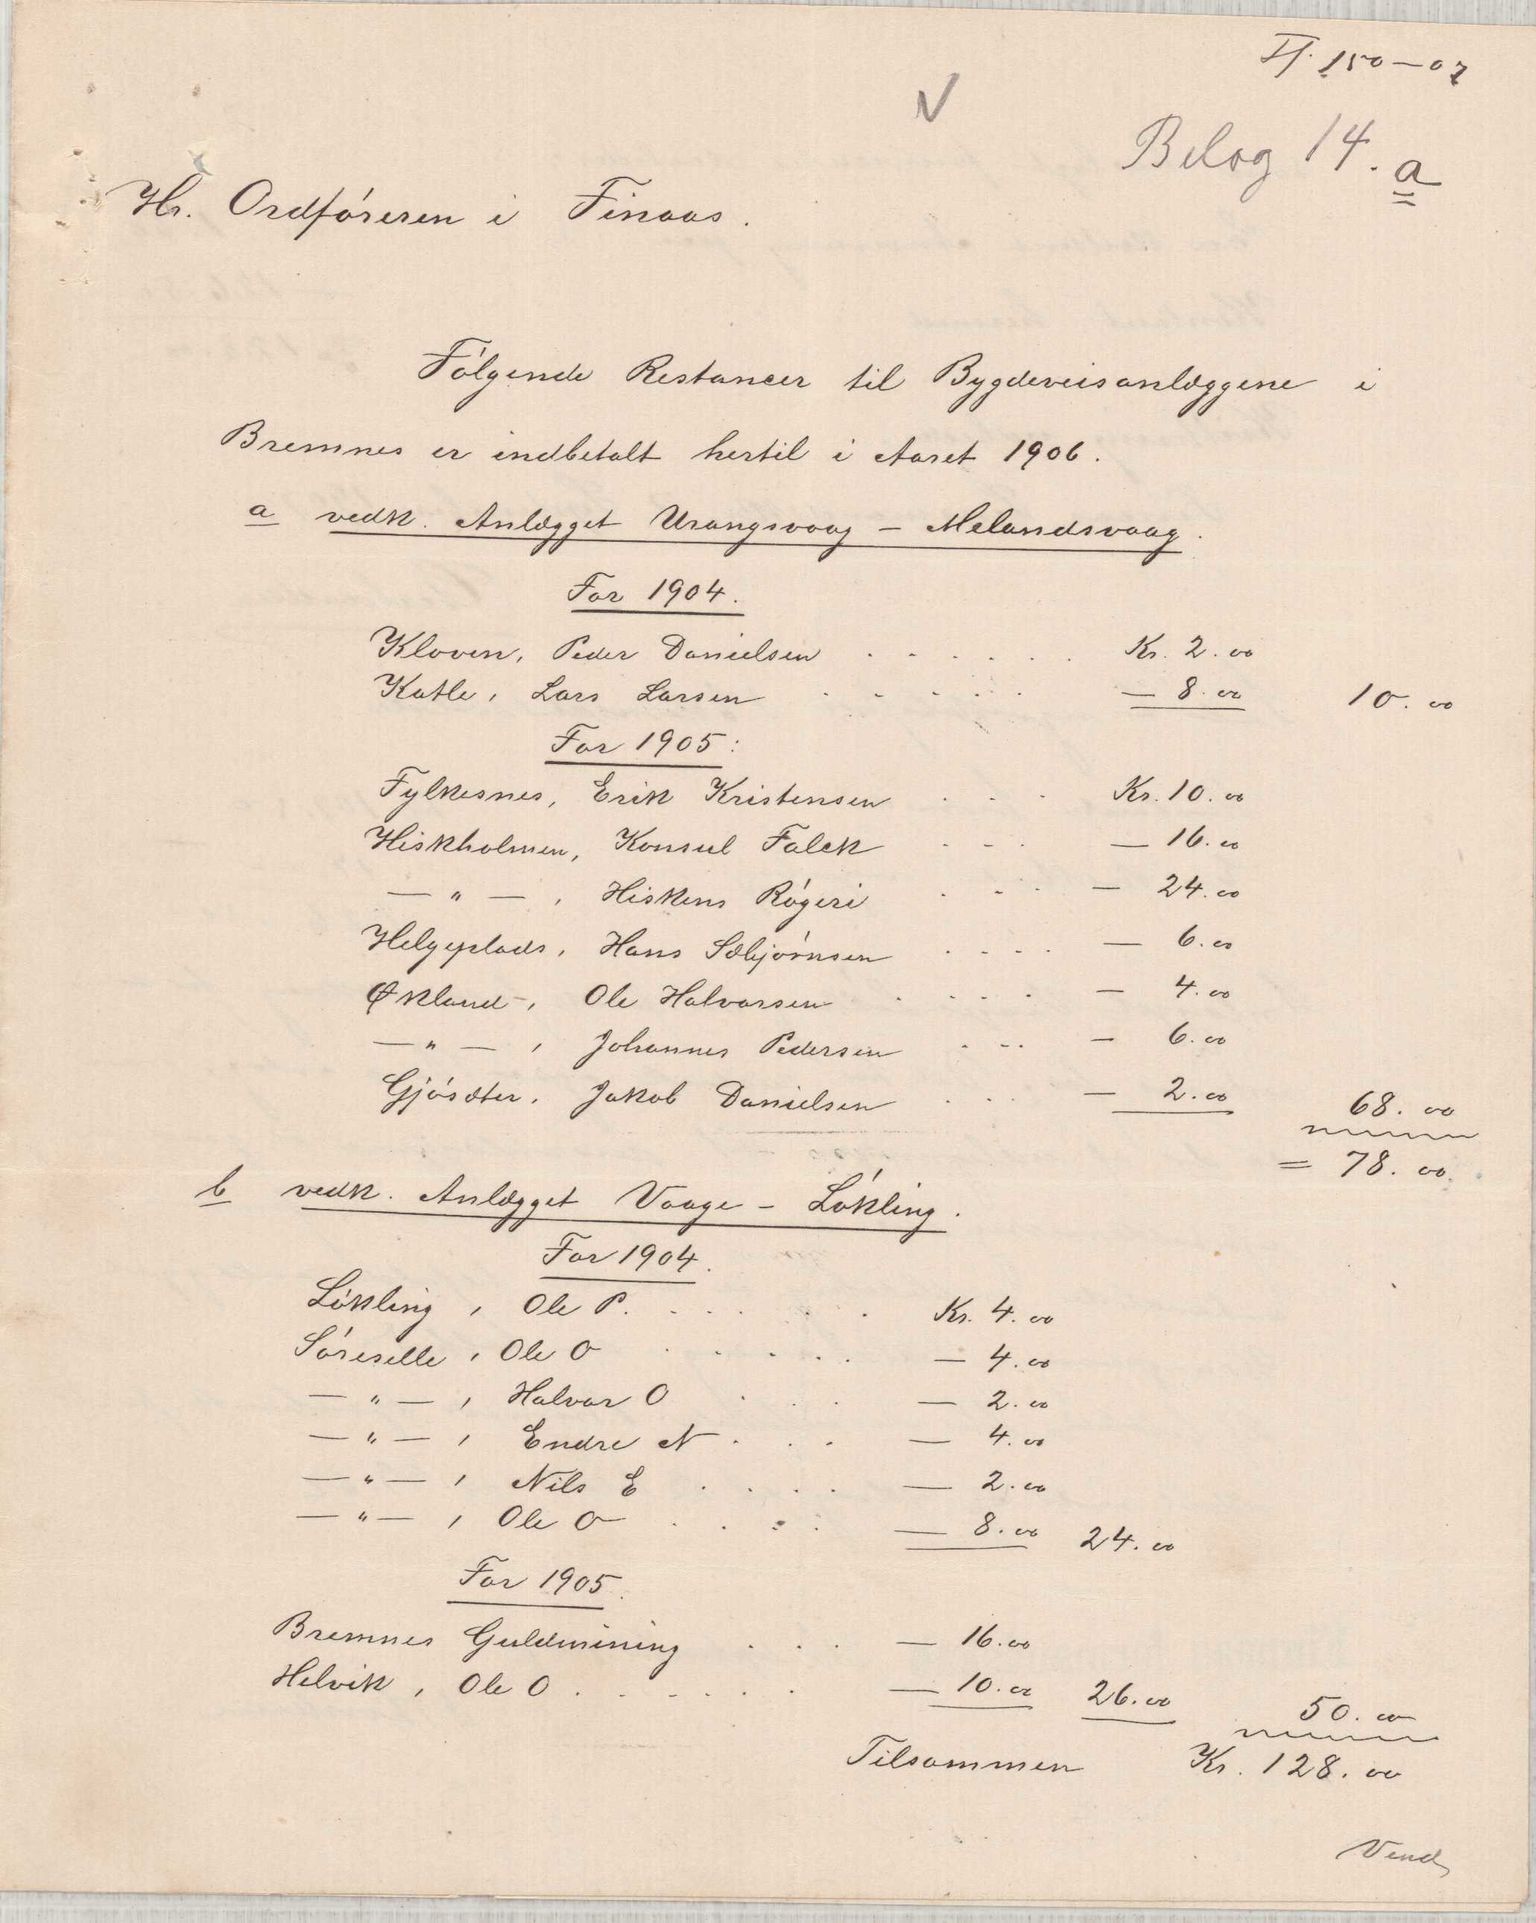 Jf. 150-07
Belag 14. a
Hr. Ordføreren i Finaas.
Følgende Restancer til Bygdeveisanlæggene i
Bremnes er indbetalt hertil i Aaret 1906.
a vedk. Anlægget Urangsvaag - Melandsvaag.
For 1904.
Kloven, Peder Danielsen . . . . . . Kr. 2.00
Katle, Lars Larsen . . . . . — 8.00 10.00
For 1905:
Fylkesnes, Erik Kristensen . . . Kr. 10.00
Hiskholmen, Konsul Falck . . . — 16.00
— " — , Hiskens Røgeri . . . — 24.00
Helgeplads, Hans Sæbjørnsen . . . . — 6.00
Økland, Ole Halvorsen . . . . — 4.00
— " — , Johannes Pedersen . . . — 6.00
Gjøsæter, Jakob Danielsen . . . — 2.00 68.00
= 78.00
b vedk. Anlægget Vaage - Løkling.
For 1904.
Løkling, Ole P. . . . . . Kr. 4.00
Søreselle, Ole O . . . . . — 4.00
— " — , Halvor O . . . — 2.00
— " — , Endre N . . . — 4.00
— " — , Nils E . . . . — 2.00
— " — , Ole O . . . . — 8.00 24.00
For 1905.
Bremnes Guldmining . . . — 16.00
Helvik, Ole O . . . . . . — 10.00 26.00 50.00
Tilsammen Kr. 128.00
Vend